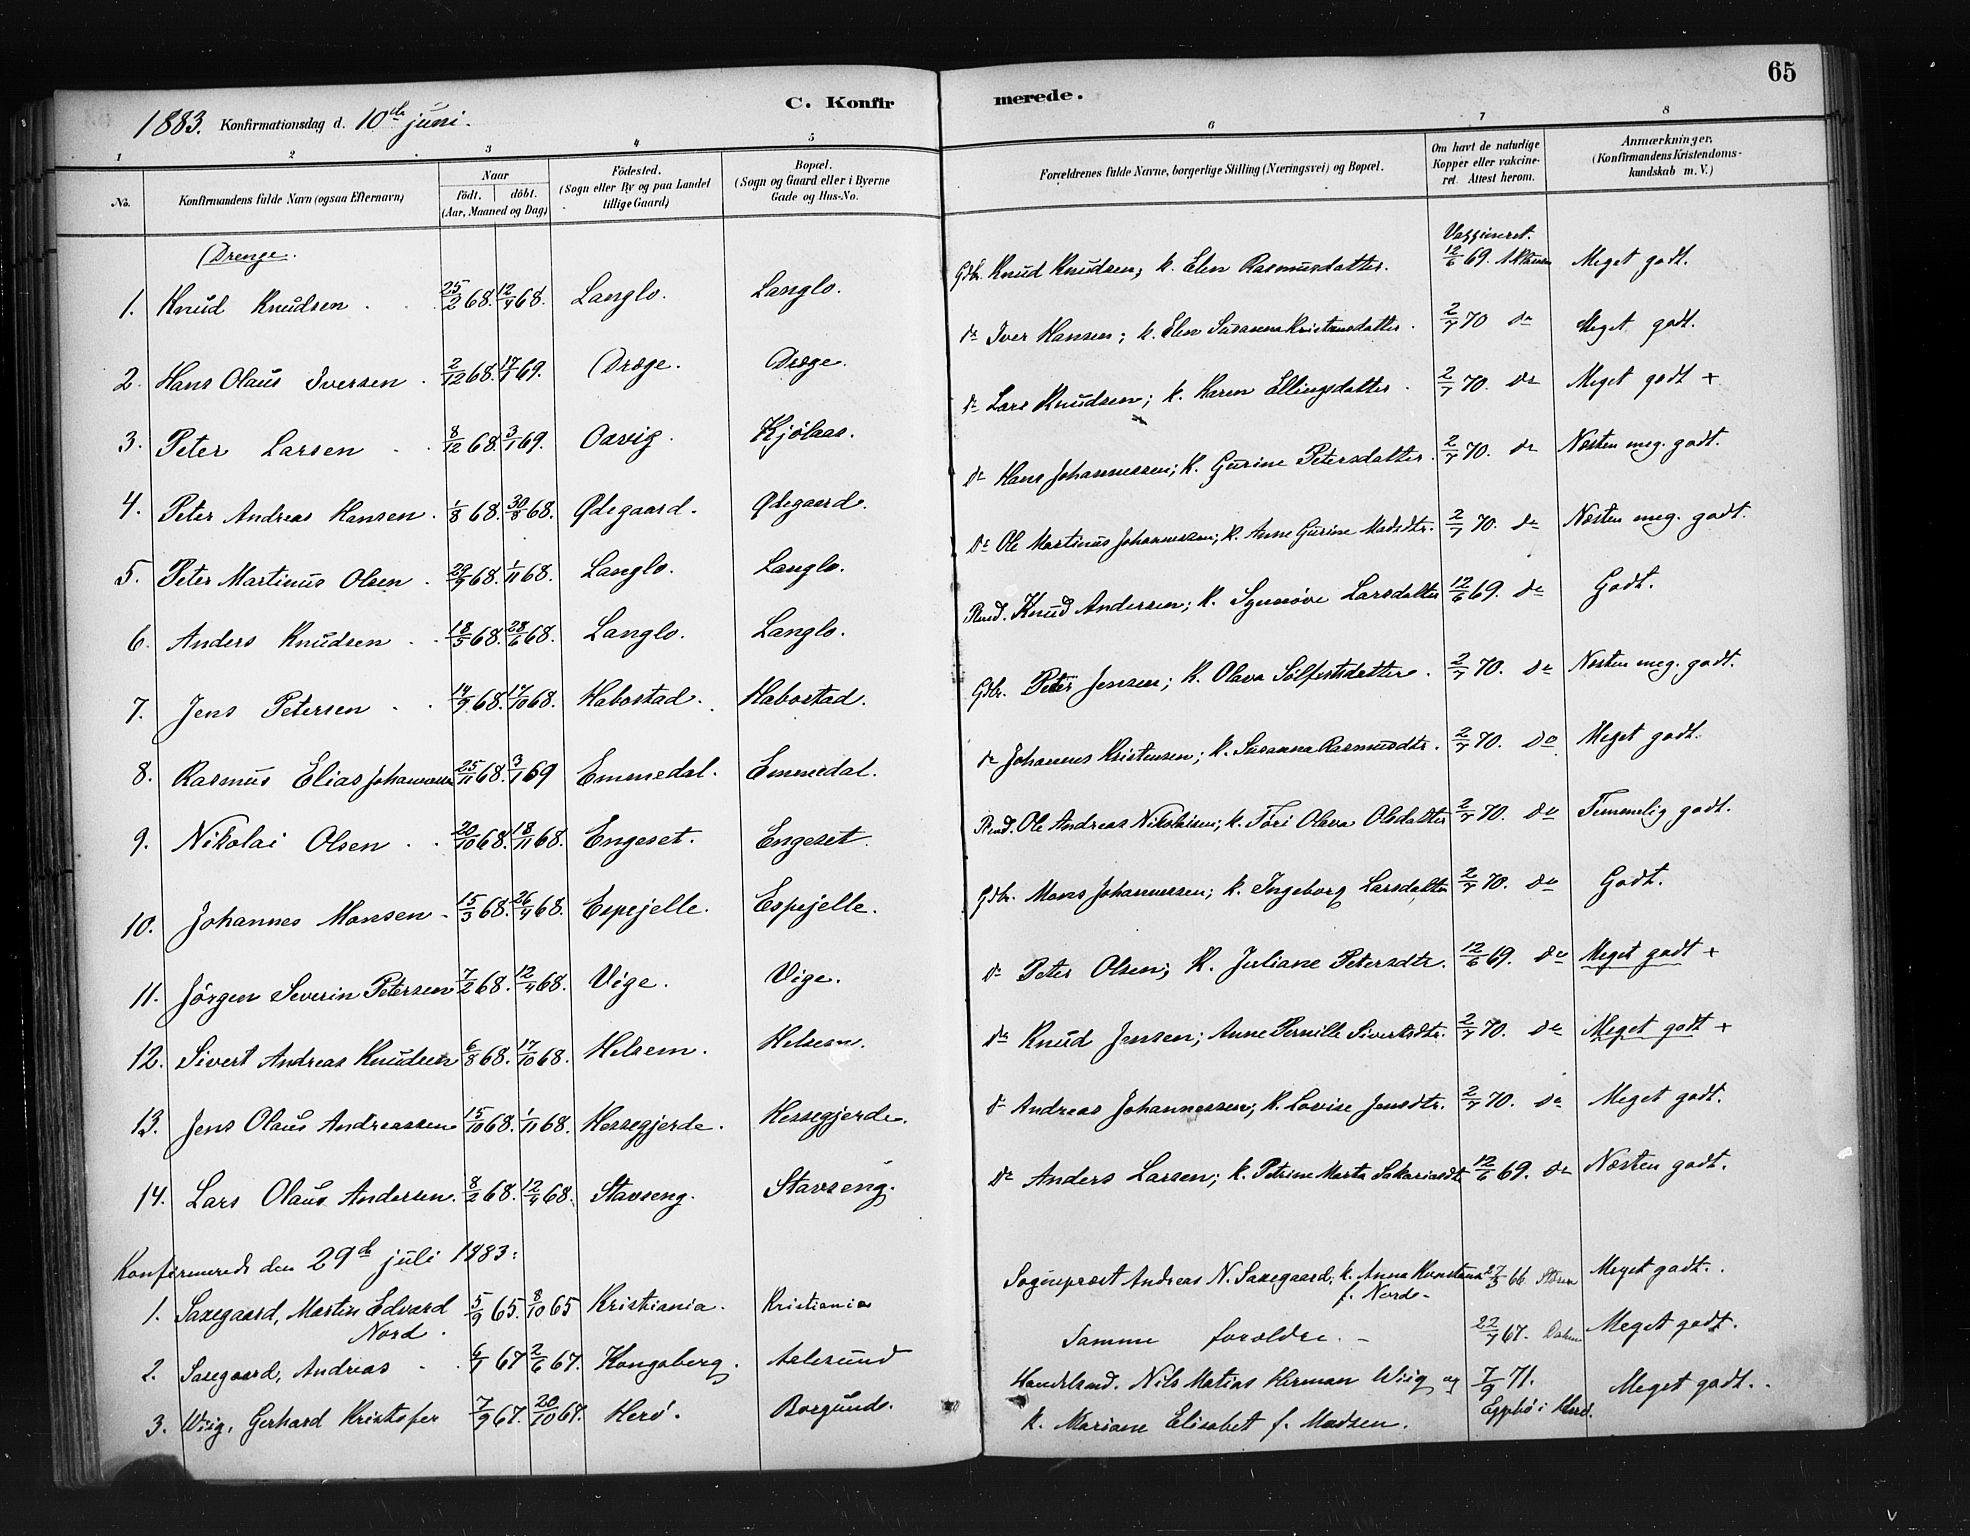 65
C. Konfirmerede.
1883. Konfirmationsdag d. 10de juni.
1 2 3 4 5 6 7 8
No. Konfirmandens fulde Navn (ogsaa Efternavn) Naar födt. döbt. (Aar, Maaned og Dag) Födested. (Sogn eller By og paa Landet tillige Gaard) Bopæl. (Sogn og Gaard eller i Byerne Gade og Hus-No. Forældrenes fulde Navne, borgerlige Stilling (Næringsvei) og Bopæl. Om havt de naturlige Kopper eller vakcineret. Attest herom. Anmærkninger. (Konfirmandens Kristendomskundskab m. V.)
Drenge.
1. Knud Knudsen 25/2 68. 12/4 68. Langlo. Langlo. Gdbr. Knud Knudsen; k. Elen Rasmusdatter. Vaxzineret. 12/6 69. Meget godt.
2. Hans Olaus Iversen 2/12 68. 17/1 69. Dræge. Dræge. do Iver Hansen; k. Elen Susanna Kristensdatter. 2/7 70 do Meget godt.
3. Peter Larsen 8/12 68. 3/1 69. Aarvig. Kjölaas. do Lars Knudsen; k. Karen Ellingsdatter. 2/7 70. do Meget godt +
4. Peter Andreas Hansen 1/8 68. 30/8 68. Ødegaard. Ødegaard. do Hans Johannessen; k. Gurine Petersdatter. 2/7 70. do Næsten meg. godt.
5. Peter Martinus Olsen 29/9 68. 1/11 68. Langlo. Langlo. do Ole Martinus Johannessen; k. Anne Gurine Madsdtr. 2/7 70. do Næsten meg. godt.
6. Anders Knudsen 18/5 68. 28/6 68. Langlo. Langlo. Knud Andersen; k. Synnøve Larsdatter 12/6 69. do Godt.
7. Jens Petersen 14/9 68. 17/10 68. Habostad. Habostad. Gdbr. Peter Jensen; k. Olava Sølfestdatter. 2/7 70. do Næsten meg. godt.
8. Rasmus Elias Johannessen 25/11 68. 3/1 69 Emmedal. Emmedal. do Johannes Kristensen; k. Susanna Rasmusdtr. 2/7 70. do Meget godt.
9. Nikolai Olsen 20/10 68. 18/11 68. Engeset. Engeset. Ole Andreas Nikolaisen; k. Olava Olsdatter 2/7 70. do Temmelig godt.
10. Johannes Monsen 15/3 68. 26/4 68. Espejelle. Espejelle. Gdbr. Mons Johannessen; k. Ingeborg Larsdatter 2/7 70. do Godt.
11. Jörgen Severin Petersen 7/2 68. 12/4 68. Vige. Vige. do Peter Olsen; k. Juliane Petersdtr. 12/6 69. do Meget godt +
12. Sivert Andreas Knudsen 6/8 68. 17/10 68. Helsem. Helsem. do Knud Jensen; Anne Pernille Sivertsdtr. 2/7 70. do Meget godt +
13. Jens Olaus Andreassen 15/10 68. 1/11 68. Hessegjerde. Hessegjerde. do Andreas Johannessen; k. Lovise Jensdtr. 2/7 70. do Meget godt.
14. Lars Olaus Andersen. 8/2 68. 12/4 68. Stavseng. Stavseng. do Anders Larsen; k. Petrine Marta Sakariasdtr 12/6 69. do Næsten godt.
Konfirmerede den 29de juli 1883:
1. Saxegaard, Martin Edvard Nord. 5/9 65. 8/10 65 Kristiania. Kristiania Sogneprest Andreas N. Saxegaard; k. Anna f. Nord. 27/3 66 Meget godt.
2. Saxegaard, Andreas 6/1 67 2/6 67. Kongsberg. Aalesund Samme foreldre. 22/7 67. Meget godt.
3. Wiig, Gerhard Kristofer 7/9 67. 20/10 67. Herö. Borgund. Handelsmd. Nils Matias Herman Wiig og k. Mariane Elisabet f. Madsen. 7/9 71. Meget godt.